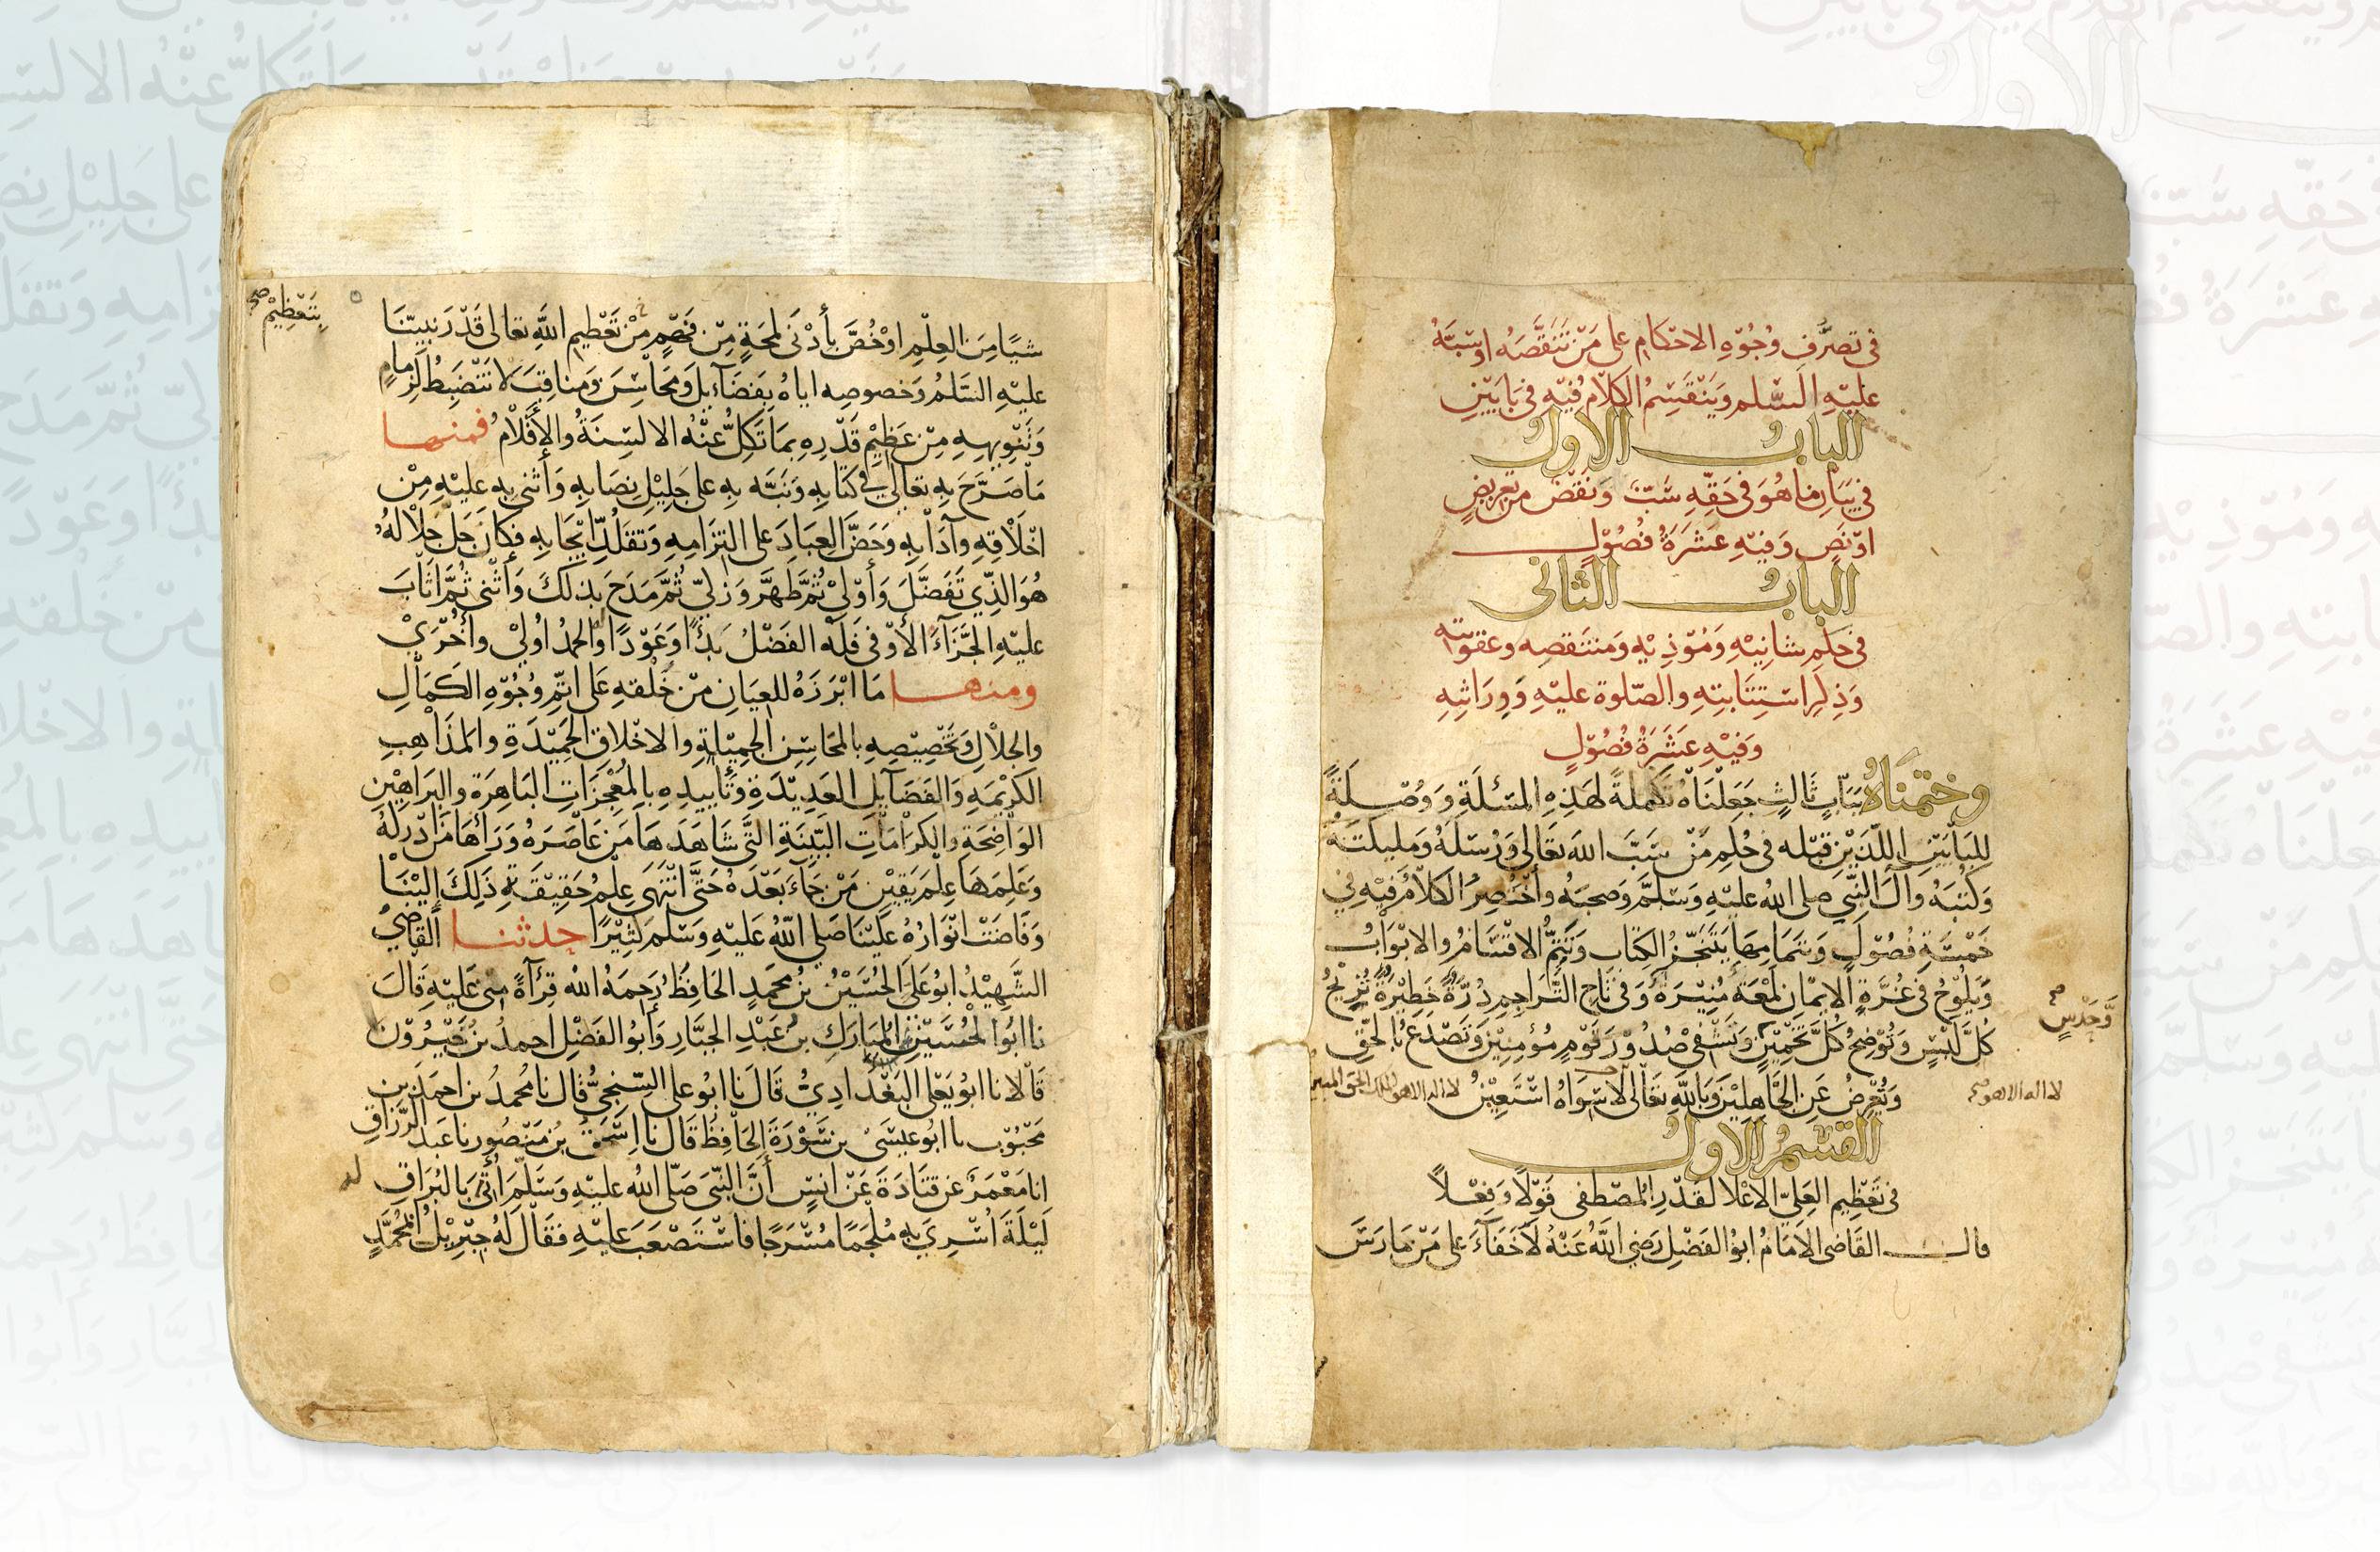 في تصرف وجوه الاحكام على من تنقصه او سبه
عليه السلم وينقسم الكلام فيه في بابين
الباب الاول
في بيان ما هو في حقه سب ونقص من تعريض
او نص وفيه عشرة فصول
الباب الثاني
في حكم شانيه ومؤذيه ومنتقصه وعقوبته
وذكر استتابته والصلوة عليه ووراثته
وفيه عشرة فصول
وختمناه بباب ثالث جعلناه تكملة لهذه المسئلة ووصلة
للبابين اللذين قبله في حكم من سب الله تعالى ورسله ومليكته
وكتبه وال النبي صلى الله عليه وسلم وصحبه واختصر الكلام فيه في
خمسة فصول وبتمامها يتنجز الكتاب وتتم الاقسام والابواب
ويلوح في غرة الايمان لمعة منيرة وفي تاج التراجم درة خطيرة تزيح
كل لبس وتوضح كل تخمين وتشفي صدور قوم مؤمنين وتصدع بالحق
وتعرض عن الجاهلين وبالله تعالى لا سواه استعين
القسم الاول
في تعظيم العلي الاعلا لقدر المصطفى قولا وفعلا
قال القاضي الامام ابو الفضل رضي الله عنه لا خفاء على من مارس
وحدس
صح
لا اله الا هو
لا اله الا هو الملك الحق المبين
شيا من العلم او خص بأدنى لمحة من فهم من تعظيم الله تعالى قدر نبينا
عليه السلم وخصوصه اياه بفضايل ومحاسن ومناقب لا تنضبط لزمام
وتنويهه من عظيم قدره بما تكل عنه الالسنة والأقلام فمنها
ما صرح به تعالى في كتابه ونبه به على جليل نصابه وأثنى به عليه من
اخلاقه وآدابه وحض العباد على التزامه وتقلد ايجابه فكان جل جلاله
هو الذي تفضل وأولى ثم طهر وزكى ثم مدح بذلك وأثنى ثم أثاب
عليه الجزاء الأوفى فله الفضل بدأ وعودا والحمد اولى وأخرى
ومنها ما ابرزه للعيان من خلقه على اتم وجوه الكمال
والجلال وتخصيصه بالمحاسن الجميلة والاخلاق الحميدة والمذاهب
الكريمة والفضايل العديدة وتأييده بالمعجزات الباهرة والبراهين
الواضحة والكرامات البينة التي شاهدها من عاصره ورأها من ادركه
وعلمها علم يقين من جاء بعده حتى انتهى علم حقيقة ذلك الينا
وفاضت انواره علينا صلى الله عليه وسلم كثيرا حدثنا القاضي
الشهيد ابو علي الحسين بن محمد الحافظ رحمه الله قرآءة مني عليه قال
نا ابو الحسين المبارك بن عبد الجبار وأبو الفضل احمد بن خيرون
قالا نا ابو يعلى البغدادي قال نا ابو علي السنجي قال نا محمد بن احمد بن
محبوب نا ابو عيسى بن سورة الحافظ قال نا اسحق بن منصور نا عبد الرزاق
انا معمر عن قتادة عن انس أن النبي صلى الله عليه وسلم أتي بالبراق
ليلة اسري به ملجما مسرجا فاستصعب عليه فقال له جبريل ابمحمد
بتعظيم صح